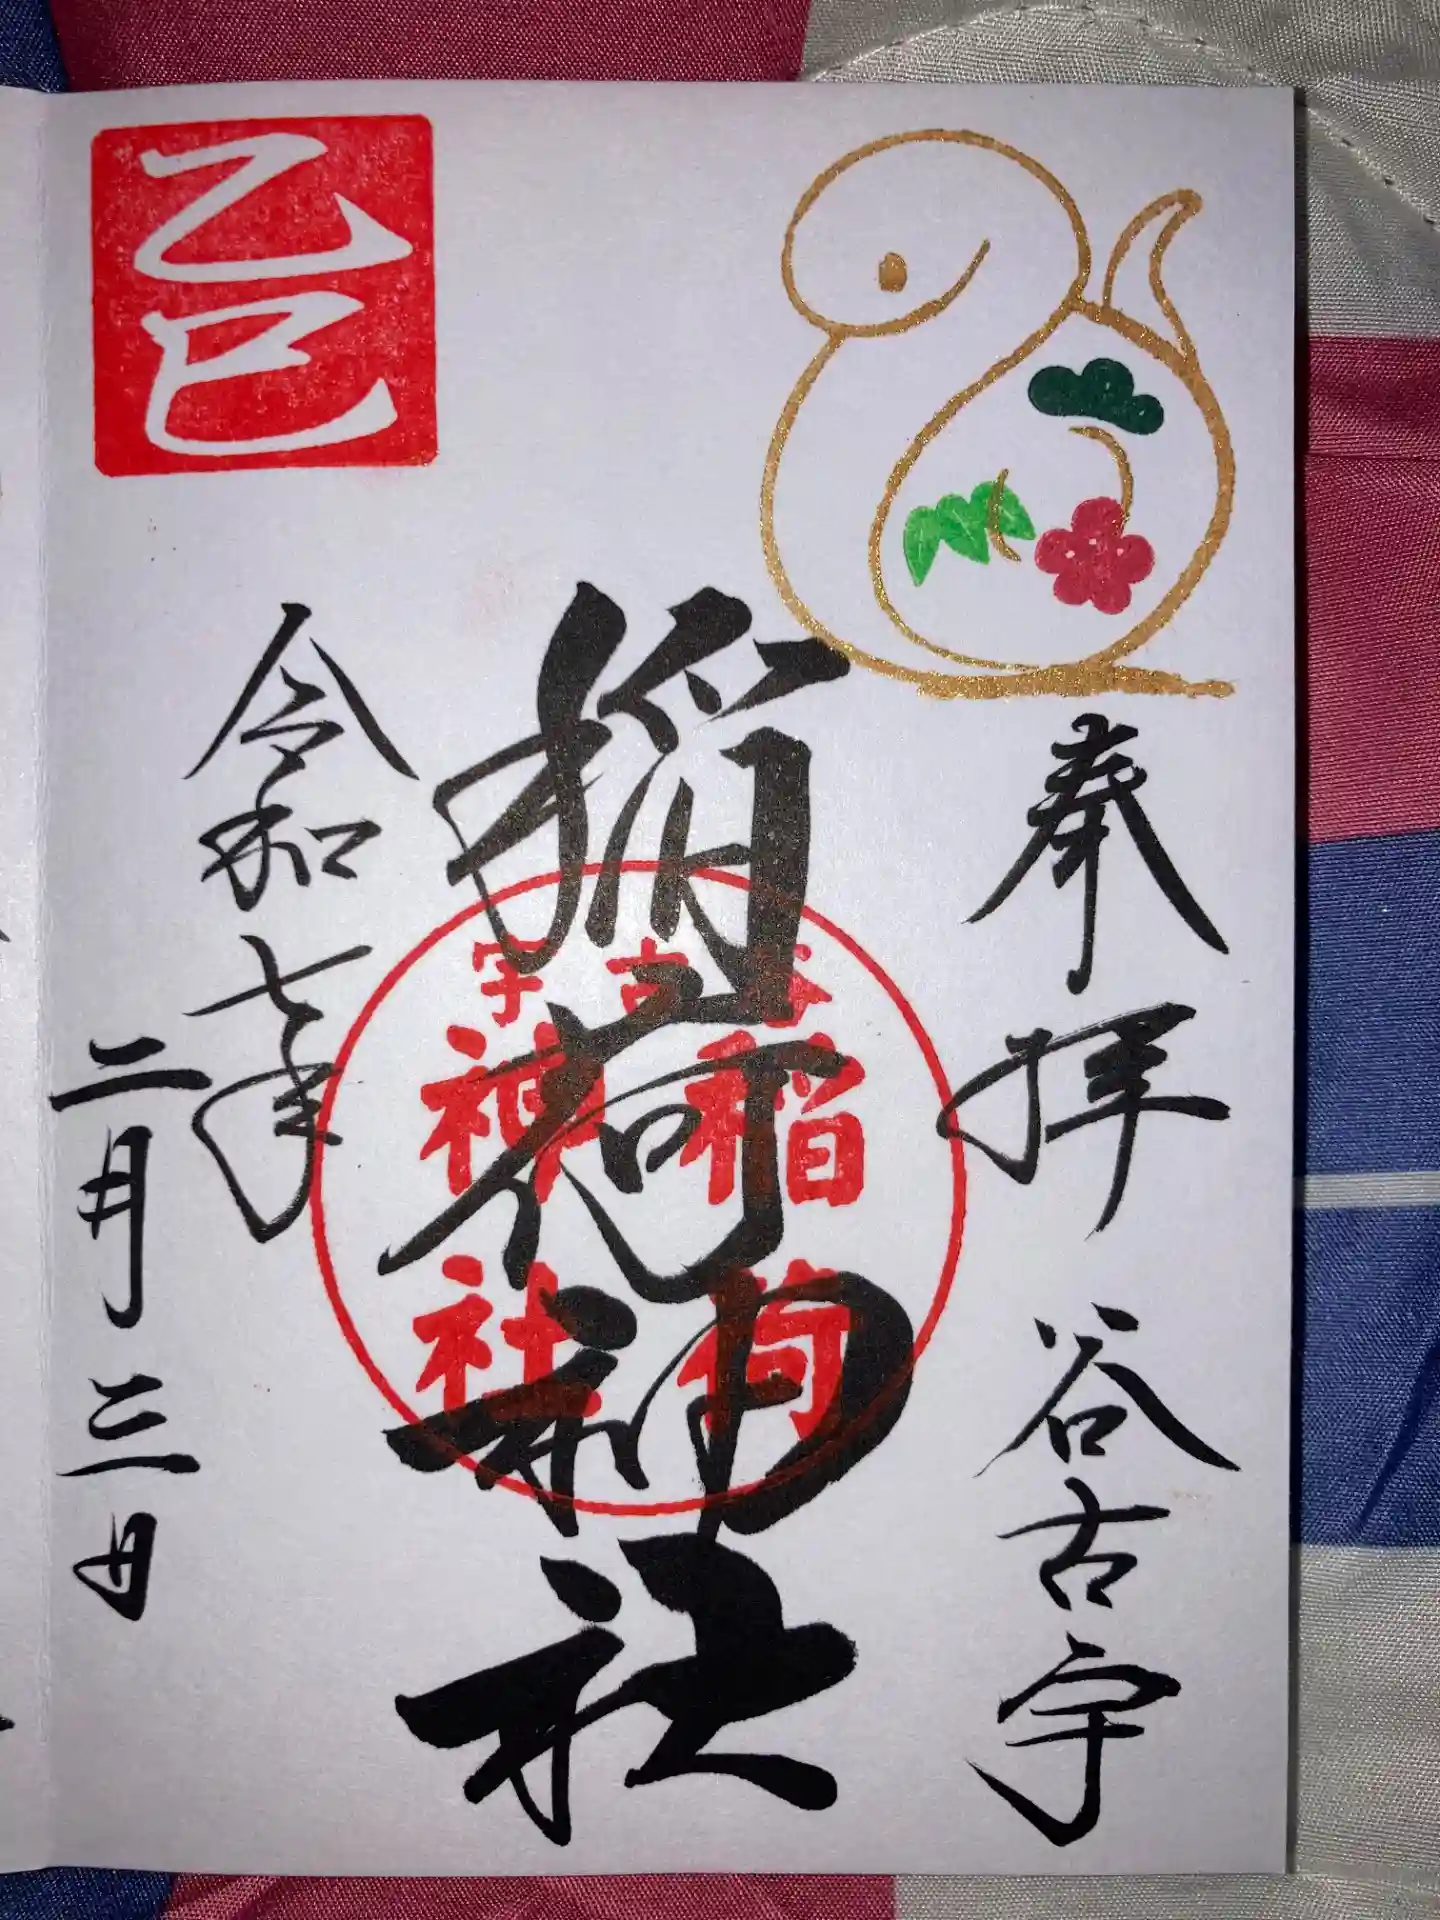 奉拝 谷古宇
稲荷神社
谷古宇
稲荷
神社
乙巳
令和七年
二月三日